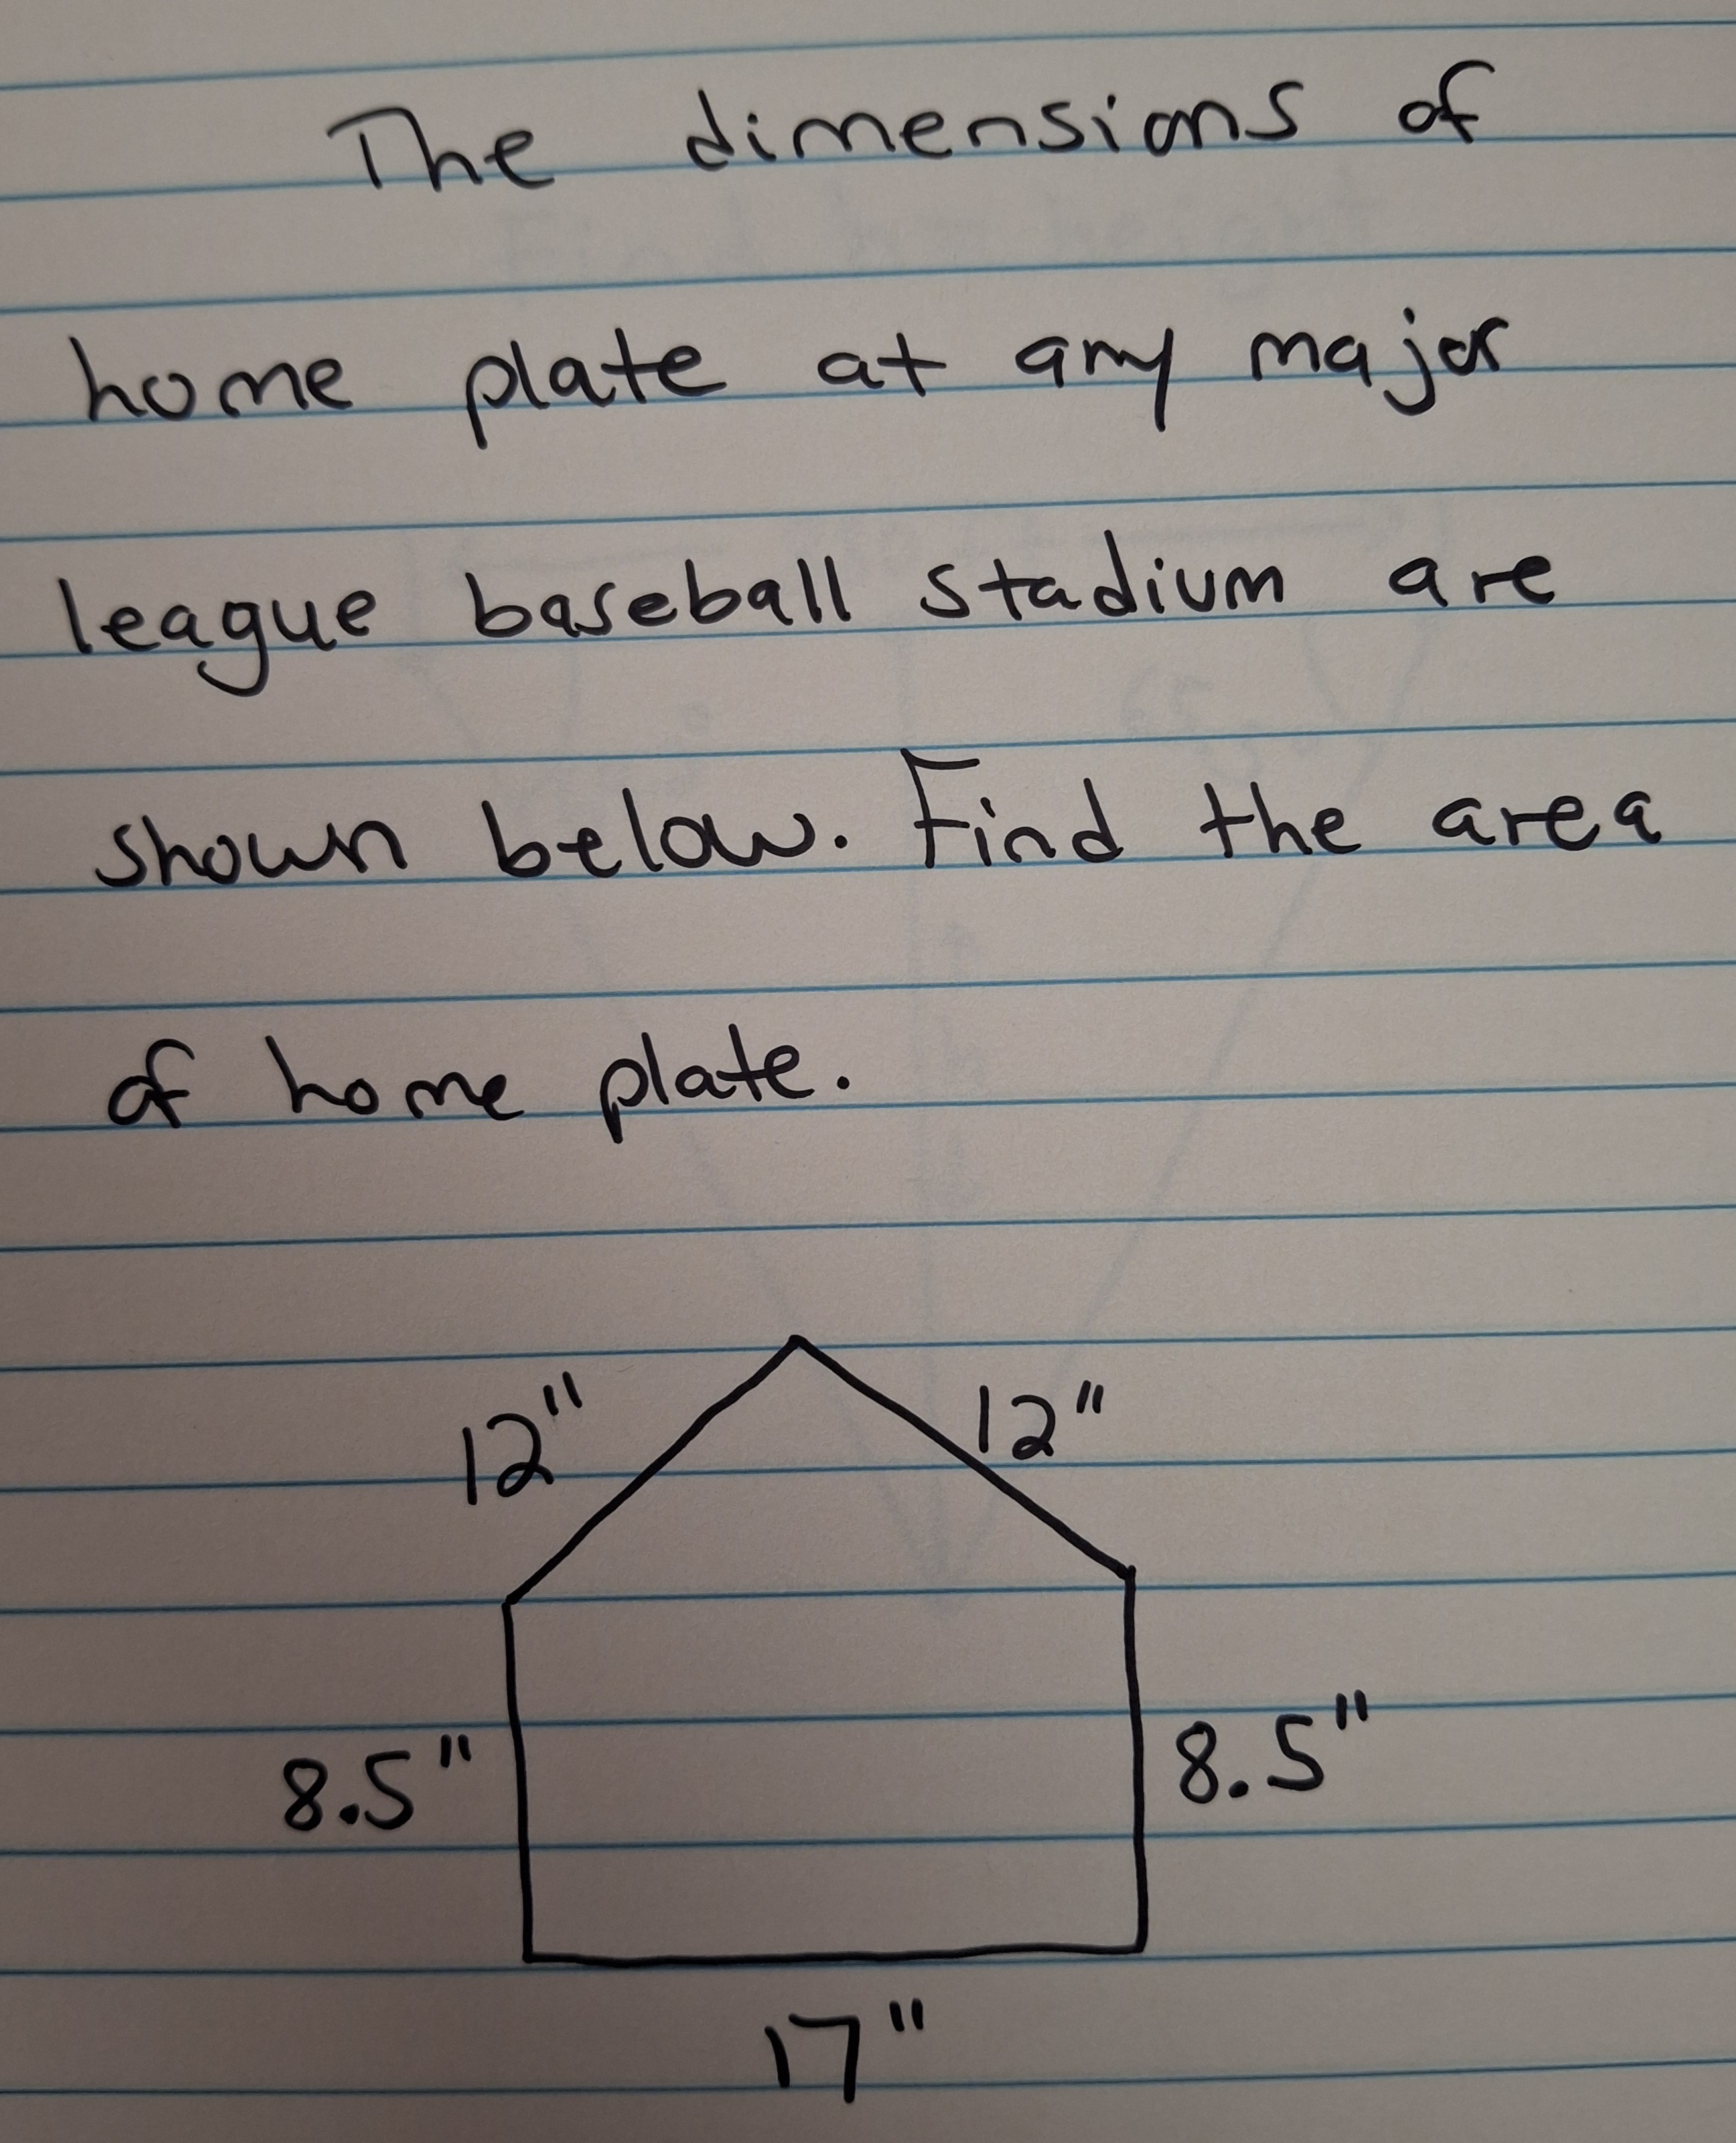 The dimensions of
home plate at any major
league baseball stadium are
shown below. Find the area
of home plate.
12" 12"
8.5" 8.5"
17"